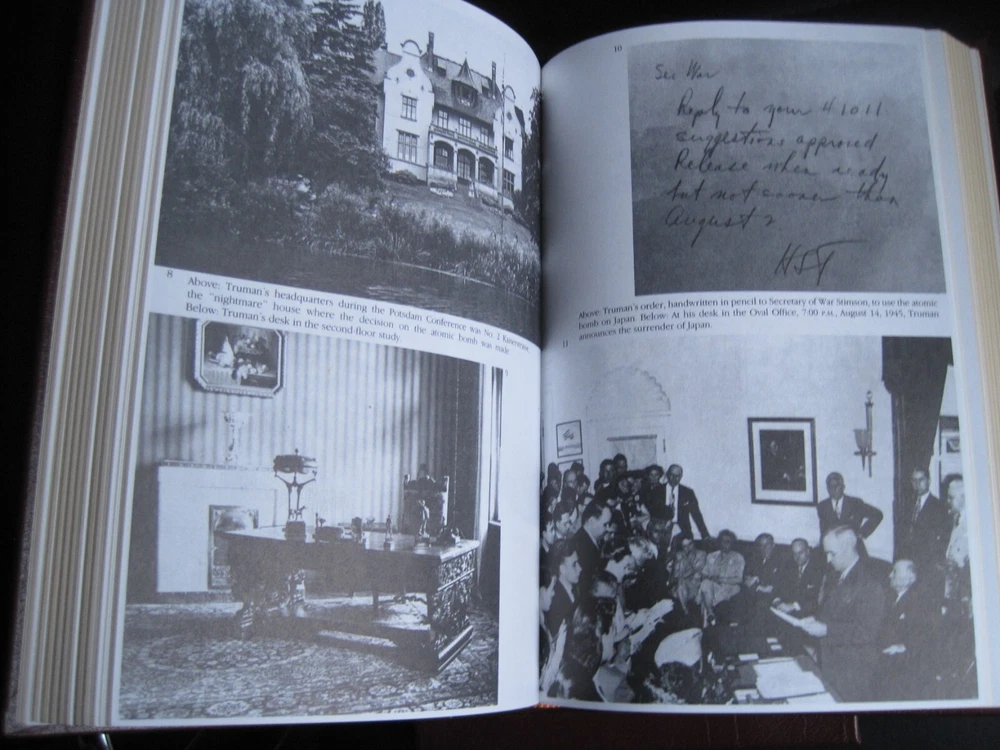 8
Above: Truman's headquarters during the Potsdam Conference was No. 2 Kaiserstrasse,
the "nightmare" house where the decision on the atomic bomb was made.
Below: Truman's desk in the second-floor study.
9
10
Sec War
Reply to your 41011
suggestions approved
Release when ready
but not sooner than
August 2
HST
Above: Truman's order, handwritten in pencil to Secretary of War Stimson, to use the atomic
bomb on Japan. Below: At his desk in the Oval Office, 7:00 P.M., August 14, 1945, Truman
announces the surrender of Japan.
11